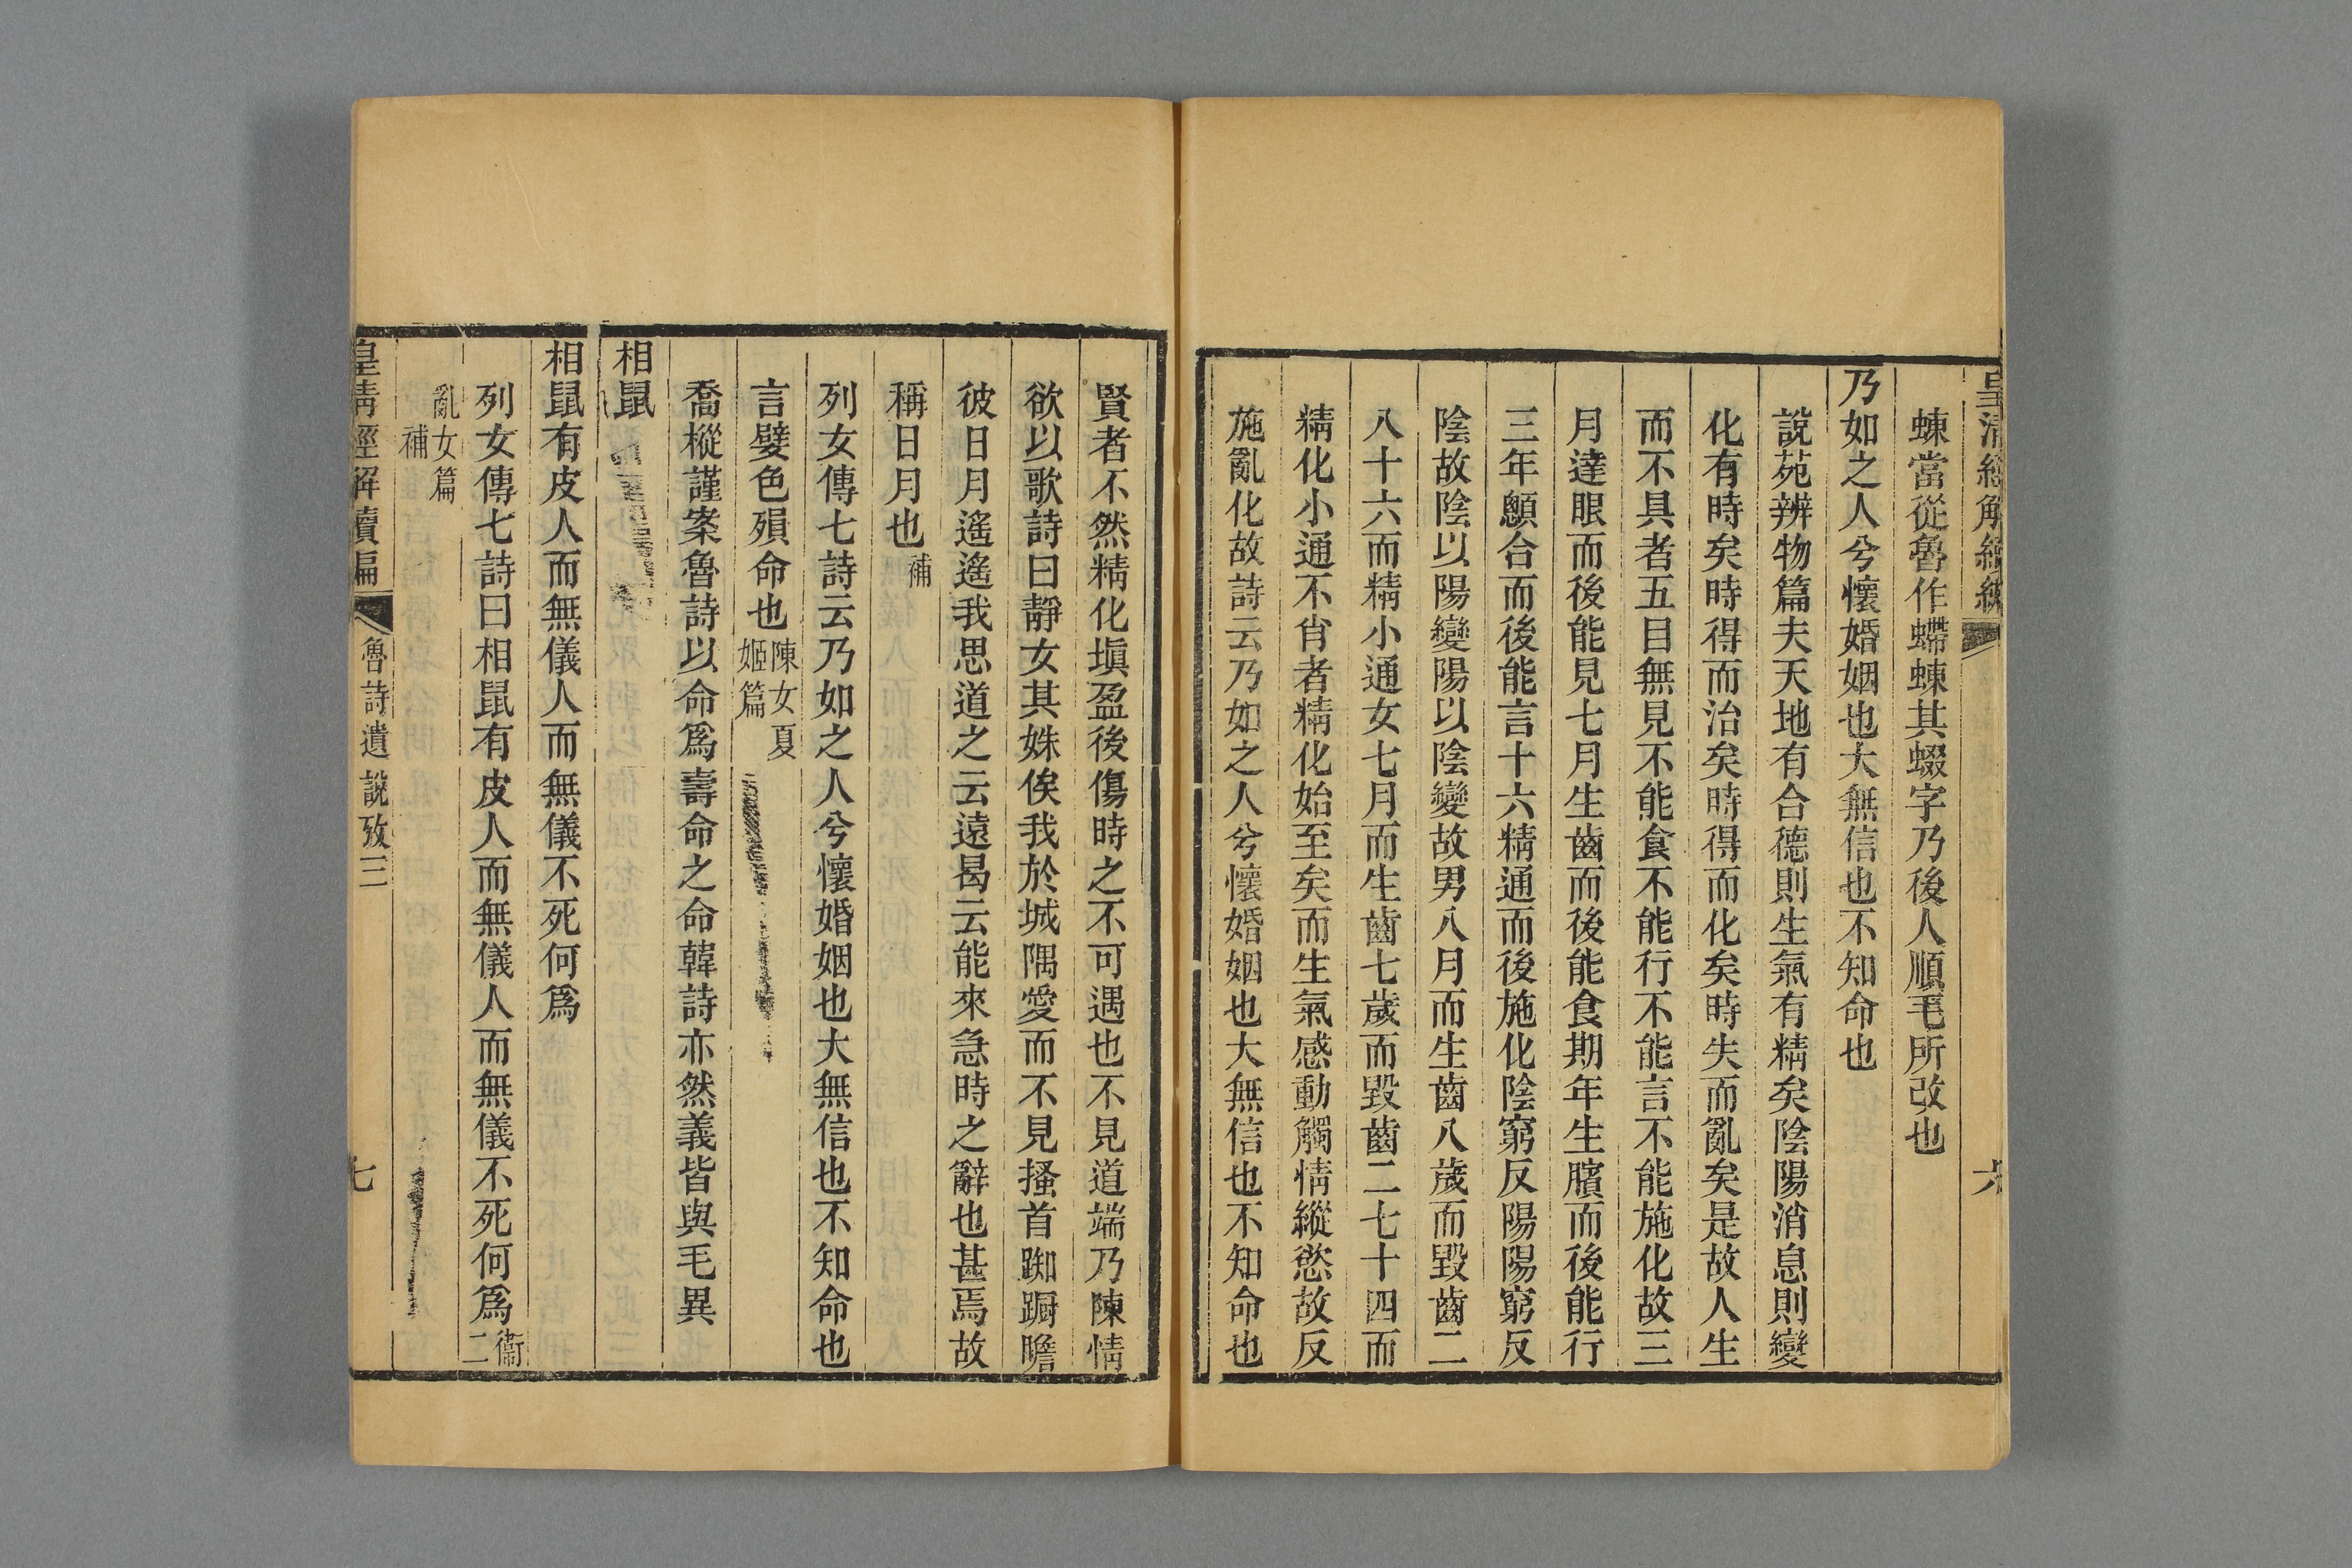 皇清經解續編
六
蝀當從魯作螮蝀其蝃字乃後人順毛所改也
乃如之人兮懷婚姻也大無信也不知命也
說苑辨物篇夫天地有合德則生氣有精矣陰陽消息則變
化有時矣時得而治矣時得而化矣時失而亂矣是故人生
而不具者五目無見不能食不能行不能言不能施化故三
月達眼而後能見七月生齒而後能食期年生臏而後能行
三年顖合而後能言十六精通而後施化陰窮反陽陽窮反
陰故陰以陽變陽以陰變故男八月而生齒八歲而毀齒二
八十六而精小通女七月而生齒七歲而毀齒二七十四而
精化小通不肖者精化始至矣而生氣感動觸情縱慾故反
施亂化故詩云乃如之人兮懷婚姻也大無信也不知命也
賢者不然精化塡盈後傷時之不可遇也不見道端乃陳情
欲以歌詩曰靜女其姝俟我於城隅愛而不見搔首踟躕瞻
彼日月遙遙我思道之云遠曷云能來急時之辭也甚焉故
稱日月也補
列女傳七詩云乃如之人兮懷婚姻也大無信也不知命也
言嬖色殞命也陳女夏姬篇
喬樅謹案魯詩以命爲壽命之命韓詩亦然義皆與毛異
相鼠
相鼠有皮人而無儀人而無儀不死何爲
列女傳七詩曰相鼠有皮人而無儀人而無儀不死何爲衞二
亂女篇補
皇清經解續編
魯詩遺說攷三
七